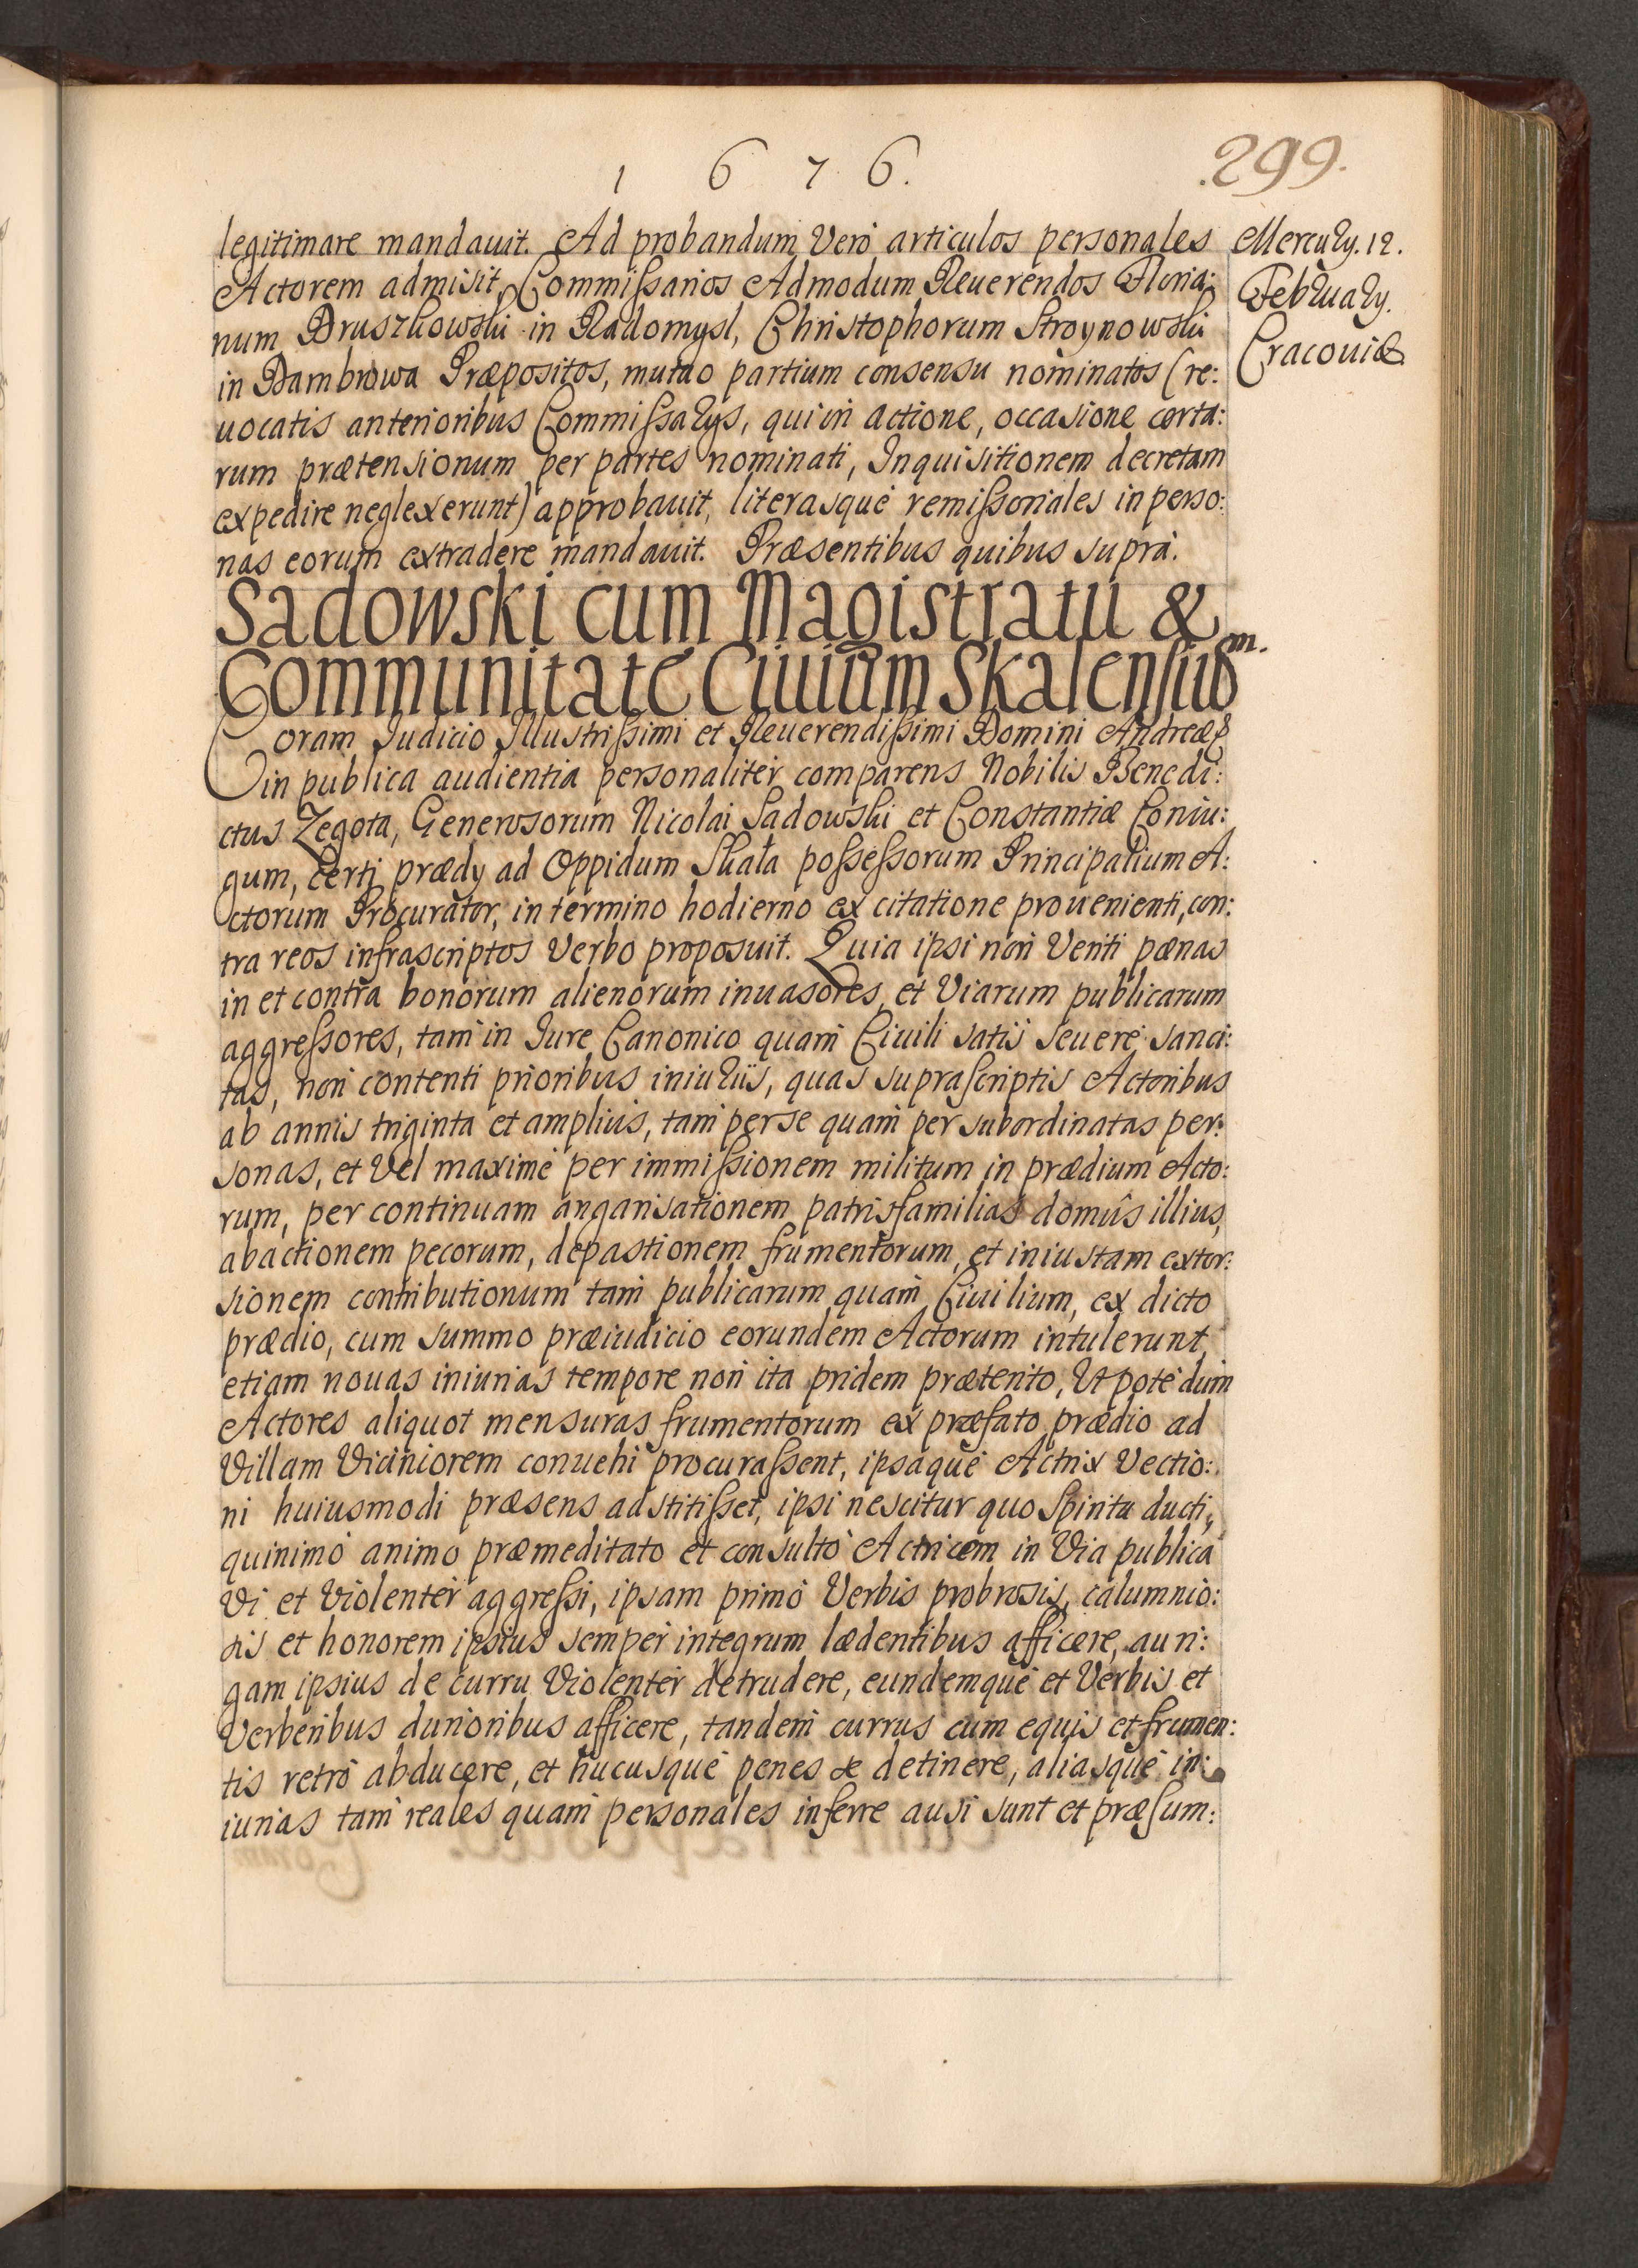 1676.
299.
legitimare mandauit. Ad probandum Verò articulos personales
Actorem admisit, Commissarios Admodum Reuerendos Floria:
num Druszkowski in Radomysl, Christophorum Stroynowski
in Dambrowa Præpositos, mutuo partium consensu nominatos (re:
uocatis anterioribus Commissarÿs, qui in actione, occasione certa:
rum prætensionum per partes nominati, Inquisitionem decretam
expedire neglexerunt) approbauit, literasquè remissoriales in perso:
nas eorum extradere mandauit. Præsentibus quibus suprà.
Mercurÿ. 12.
Februarÿ.
Cracouiæ
Sadowski cum Magistratu &
Communitate Ciuium Skalensium.
Coram Iudicio Illustrissimi et Reuerendissimi Domini Andreæ &
in publica audientia personalitèr comparens Nobilis Benedi:
ctus Zegota, Generosorum Nicolai Sadowski et Constantiæ Coniu:
gum, certi prædÿ ad Oppidum Skała possessorum Principalium A:
ctorum Procurator, in termino hodierno ex citatione prouenienti, con:
tra reos infrascriptos Verbo proposuit. Quia ipsi non Veriti pœnas
in et contra bonorum alienorum inuasores, et Viarum publicarum
aggressores, tam in Iure Canonico quam Ciuili satis seuerè sanci:
tas, non contenti prioribus iniurÿs, quas suprascriptis Actoribus
ab annis triginta et ampliùs, tam per se quam per subordinatas per:
sonas, et Vel maximè per immissionem militum in prædium Acto:
rum, per continuam angarisationem patrisfamilias domûs illius,
abactionem pecorum, depastionem frumentorum, et iniustam extor:
sionem contributionum tam publicarum quam Ciuilium, ex dicto
prædio, cum summo præiudicio eorundem Actorum intulerunt,
etiam nouas iniurias tempore non ita pridem præterito, Ut potè dum
Actores aliquot mensuras frumentorum ex præfato prædio ad
Villam Viciniorem conuehi procurassent, ipsaquè Actrix Vectio:
ni huiusmodi præsens adstitisset, ipsi nescitur quo Spiritu ducti,
quinimò animo præmeditato et consultò Actricem in Via publica
Vi et Violentèr aggressi, ipsam primò Verbis probrosis, calumnio:
sis et honorem ipsius sempèr integrum lædentibus afficere, auri:
gam ipsius de curru Violentèr detrudere, eundemquè et Verbis et
Verberibus durioribus afficere, tandem currus cum equis et frumen:
tis retrò abducere, et hucusquè penes se detinere, aliasquè in:
iurias tam reales quam personales inferre ausi sunt et præsum: